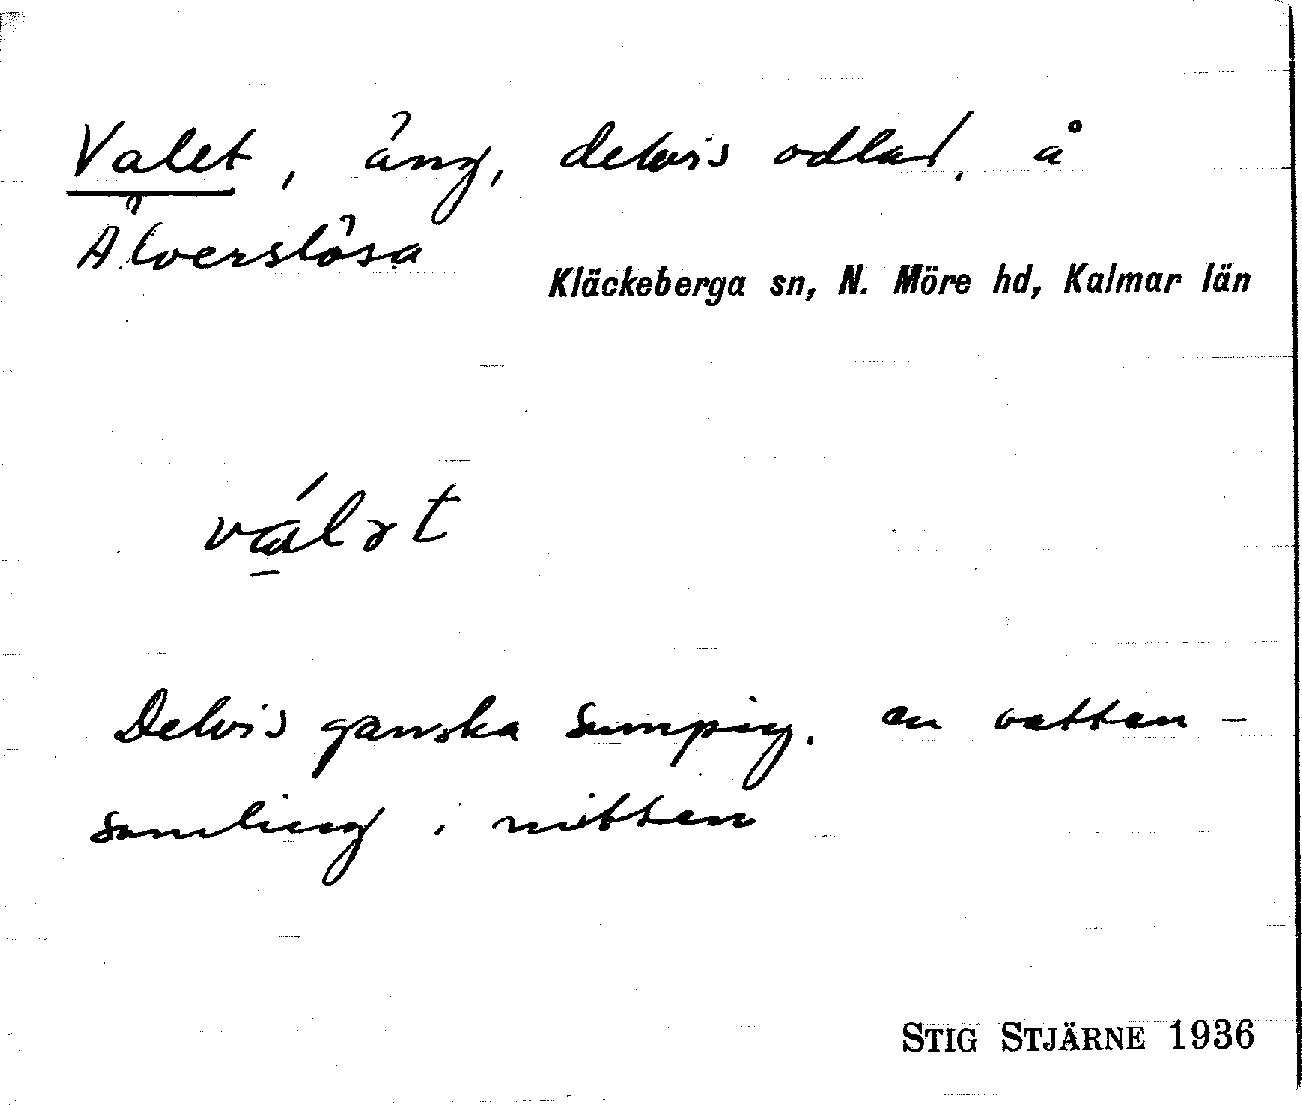 Valet, äng, delvis odlad, å
Älverslösa
Kläckeberga sn, N. Möre hd, Kalmar län
vá̱lət
Delvis ganska sumpig, en vatten-
samling i mitten
STIG STJÄRNE 1936